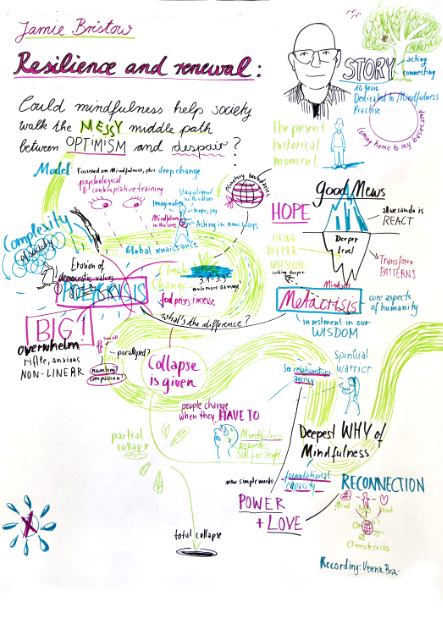 Jamie Bristow
Resilience and renewal:
Could mindfulness help society
walk the MESSY middle path
between OPTIMISM and despair?
STORY
acting
connecting
10 years
Dedicated to Mindfulness
Practise
Coming home to my
The present
historical
moment
Model:
Focused on Mindfulness,
deep change
psychological
contemplative training
Stay aligned
with values
Imagination
hope, joy
Mindfulness
Acting in new ways
Planetary boundaries
Global renaissance
Complexity
Erosion of
democratic values
3.1°
food prices increase
what's the difference?
good News
HOPE
all we can do is
REACT
ASKING
DEEPER
QUESTIONS
looking deeper
Deeper
level
Transform
PATTERNS
Mindsets
Metacrisis
core aspects
of humanity
investment in our
WISDOM
BIG!
overwhelm
anxious
NON-LINEAR
paralysed?
numbing?
compassion?
Collapse
is given
people change
when they HAVE TO
partial
collapse
total collapse
Mindfulness
Soil for Shift
relationship
agency
Spiritual
warrior
Deepest WHY of
Mindfulness
foundational
capacity
POWER
+ LOVE
RECONNECTION
Mind
Heart
Climate crisis
Recording: Verena